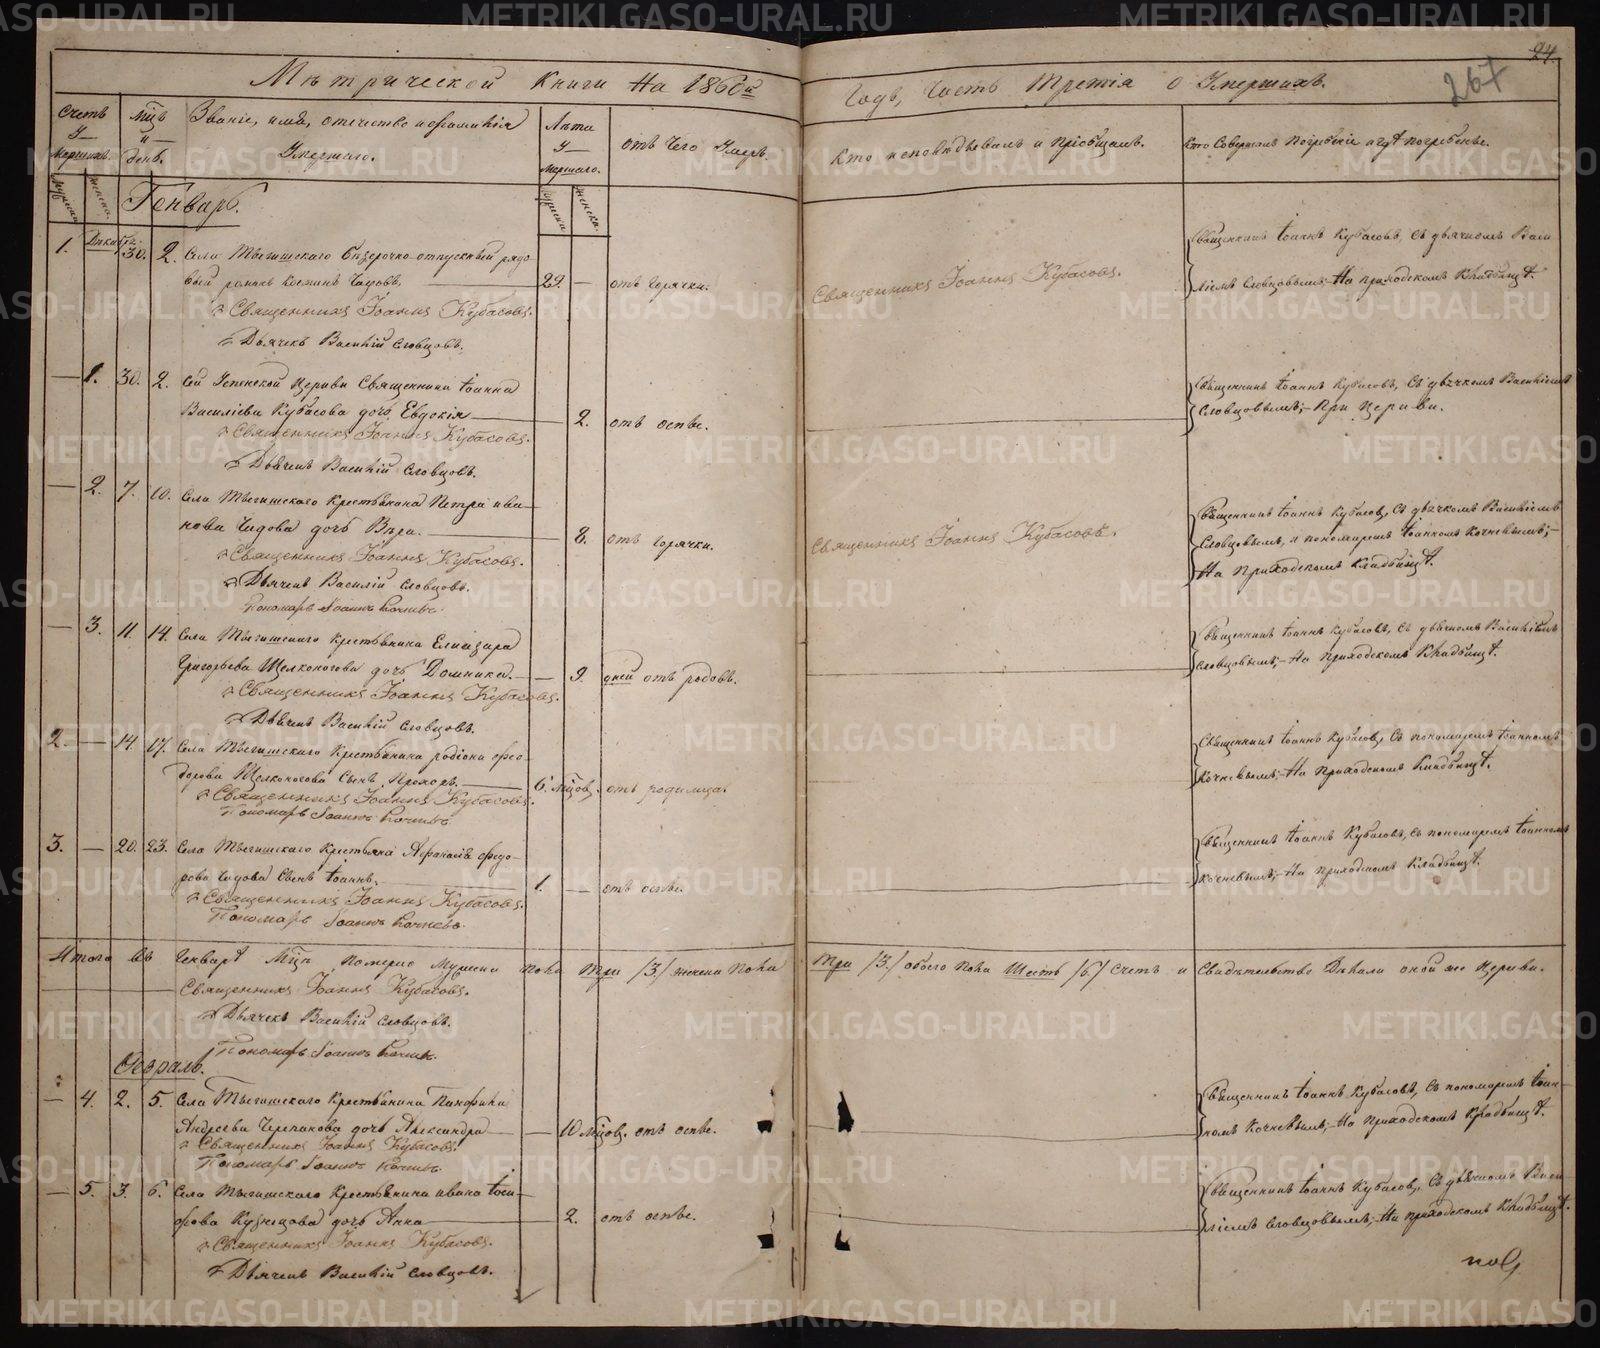 24
267
Мѣтрической Книги на 1860й Годъ, Часть Третія о Умершихъ.
Счетъ Умершихъ.
Мцъ и день.
Званіе, имя, отечество и фамилія Умершаго.
Лѣта Умершаго.
отъ Чего Умеръ.
Кто исповѣдывалъ и пріобщалъ.
Кто Совершалъ Погребеніе и гдѣ погребены.
Генварь.
1. Декабря 30. 2. Села Тыгишскаго Безсрочно-отпускный рядо-
вый романъ Косминъ Чадовъ. 29. — отъ Горячки. Священникъ Іоаннъ Кубасовъ.
Священникъ Іоаннъ Кубасовъ, Съ дьячкомъ Васи-
ліемъ Словцовымъ; На приходскомъ Кладбищѣ.
Священникъ Іоаннъ Кубасовъ.
Дьячекъ Василій Словцовъ.
— 1. 30. 2. Сей Успенской Церкви Священника Іоанна
Василіева Кубасова дочь Евдокія — 2. отъ оспы.
Священникъ Іоаннъ Кубасовъ, Съ дьячкомъ Василіемъ
Словцовымъ; При Церкви.
Священникъ Іоаннъ Кубасовъ.
Дьячекъ Василій Словцовъ.
— 2. 7. 10. Села Тыгишскаго Крестьянина Петра ива-
нова Чадова дочь Вѣра. — 8. отъ горячки. Священникъ Іоаннъ Кубасовъ.
Священникъ Іоаннъ Кубасовъ, Съ дьячкомъ Василіемъ
Словцовымъ, и пономаремъ Іоанномъ Кочневымъ;-
На Приходскомъ Кладбищѣ.
Священникъ Іоаннъ Кубасовъ.
Дьячекъ Василій Словцовъ.
Пономарь Іоаннъ Кочневъ.
— 3. 11. 14. Села Тыгишскаго Крестьянина Елиазара
Григорьева Щелконогова дочь Домника. — 9. дней отъ родовъ.
Священникъ Іоаннъ Кубасовъ, Съ дьячкомъ Василіемъ
Словцовымъ; На Приходскомъ Кладбищѣ.
Священникъ Іоаннъ Кубасовъ.
Дьячекъ Василій Словцовъ.
2. — 14. 17. Села Тыгишскаго Крестьянина родіона Фео-
дорова Щелконогова Сынъ Прохоръ. 6. мцовъ. отъ родимца.
Священникъ Іоаннъ Кубасовъ, Съ пономаремъ Іоанномъ
Кочневымъ; На Приходскомъ Кладбищѣ.
Священникъ Іоаннъ Кубасовъ.
Пономарь Іоаннъ Кочневъ.
3. — 20. 23. Села Тыгишскаго Крестьяна Афанасія Федо-
рова Чадова Сынъ Іоаннъ. 1. — отъ оспы.
Священникъ Іоаннъ Кубасовъ, Съ пономаремъ Іоанномъ
Кочневымъ; На приходскомъ Кладбищѣ.
Священникъ Іоаннъ Кубасовъ.
Пономарь Іоаннъ Кочневъ.
Итого въ Генварѣ Мцѣ померло Мужеска пола Три /3./ женска пола Три /3./ обоего пола Шесть /6./ Счетъ и Свидѣтельство Дѣлали оной же Церкви.
Священникъ Іоаннъ Кубасовъ.
Дьячекъ Василій Словцовъ.
Пономарь Іоаннъ Кочневъ.
Февраль.
— 4. 2. 5. Села Тыгишскаго Крестьянина Панфила
Андреева Черепанова дочь Александра — 10 мцовъ. отъ оспы.
Священникъ Іоаннъ Кубасовъ, Съ пономаремъ Іоан-
номъ Кочневымъ; На Приходскомъ Кладбищѣ.
Священникъ Іоаннъ Кубасовъ.
Пономарь Іоаннъ Кочневъ.
— 5. 3. 6. Села Тыгишскаго Крестьянина ивана Іоси-
фова Кузнецова дочь Анна — 2. отъ оспы.
Священникъ Іоаннъ Кубасовъ, Съ дьячкомъ Васи-
ліемъ Словцовымъ; На приходскомъ Кладбищѣ.
Священникъ Іоаннъ Кубасовъ.
Дьячекъ Василій Словцовъ.
METRIKI.GASO-URAL.RU